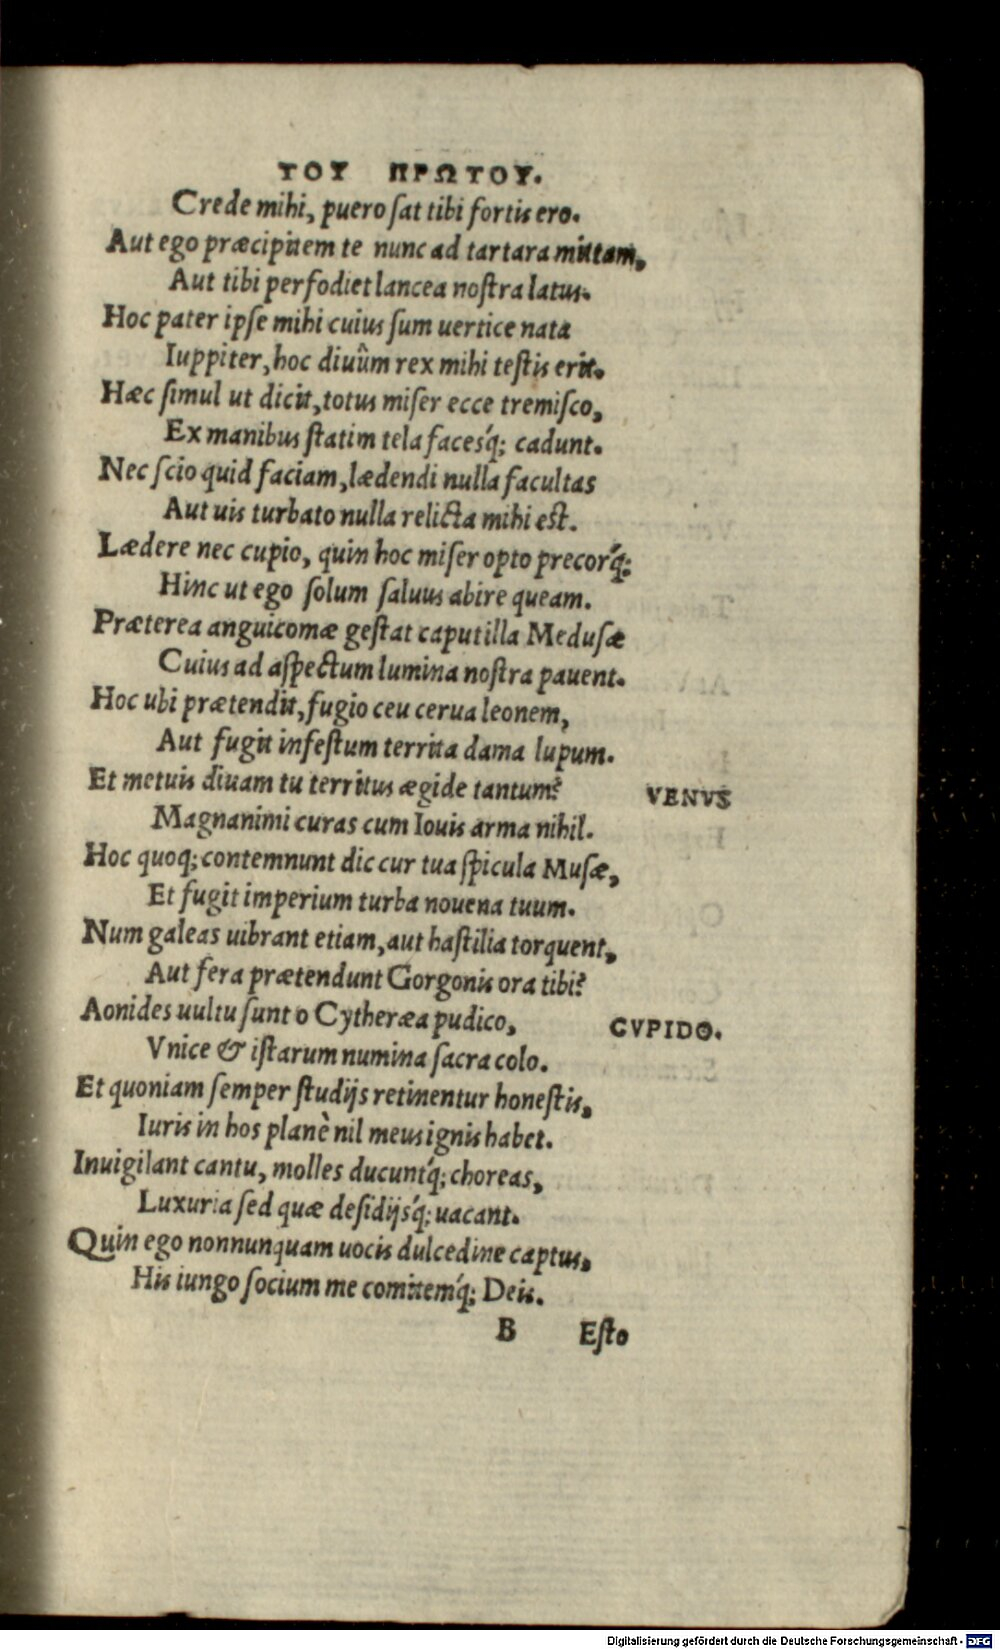 ΤΟΥ ΠΡΩΤΟΥ.
Crede mihi, puero ſat tibi fortis ero.
Aut ego præcipitem te nunc ad tartara mittam,
Aut tibi perfodiet lancea noſtra latus.
Hoc pater ipſe mihi cuius ſum uertice nata
Iuppiter, hoc diuûm rex mihi teſtis erit.
Hæc ſimul ut dicit, totus miſer ecce tremiſco,
Ex manibus ſtatim tela facesq́; cadunt.
Nec ſcio quid faciam, lædendi nulla facultas
Aut uis turbato nulla relicta mihi eſt.
Lædere nec cupio, quin hoc miſer opto precorq́;
Hinc ut ego ſolum ſaluus abire queam.
Præterea anguicomæ geſtat caput illa Meduſæ
Cuius ad aſpectum lumina noſtra pauent.
Hoc ubi prætendit, fugio ceu cerua leonem,
Aut fugit infeſtum territa dama lupum.
Et metuis diuam tu territus ægide tantum? VENVS
Magnanimi curas cum Iouis arma nihil.
Hoc quoq; contemnunt dic cur tua ſpicula Muſæ,
Et fugit imperium turba nouena tuum.
Num galeas uibrant etiam, aut haſtilia torquent,
Aut fera prætendunt Gorgonis ora tibi?
Aonides uultu ſunt o Cytheræa pudico, CVPIDO.
Vnice & iſtarum numina ſacra colo.
Et quoniam ſemper ſtudijs retinentur honeſtis,
Iuris in hos planè nil meus ignis habet.
Inuigilant cantu, molles ducuntq́; choreas,
Luxuria ſed quæ deſidijsq́; uacant.
Quin ego nonnunquam uocis dulcedine captus,
His iungo ſocium me comitemq́; Deis.
B Eſto
Digitalisierung gefördert durch die Deutsche Forschungsgemeinschaft - DFG